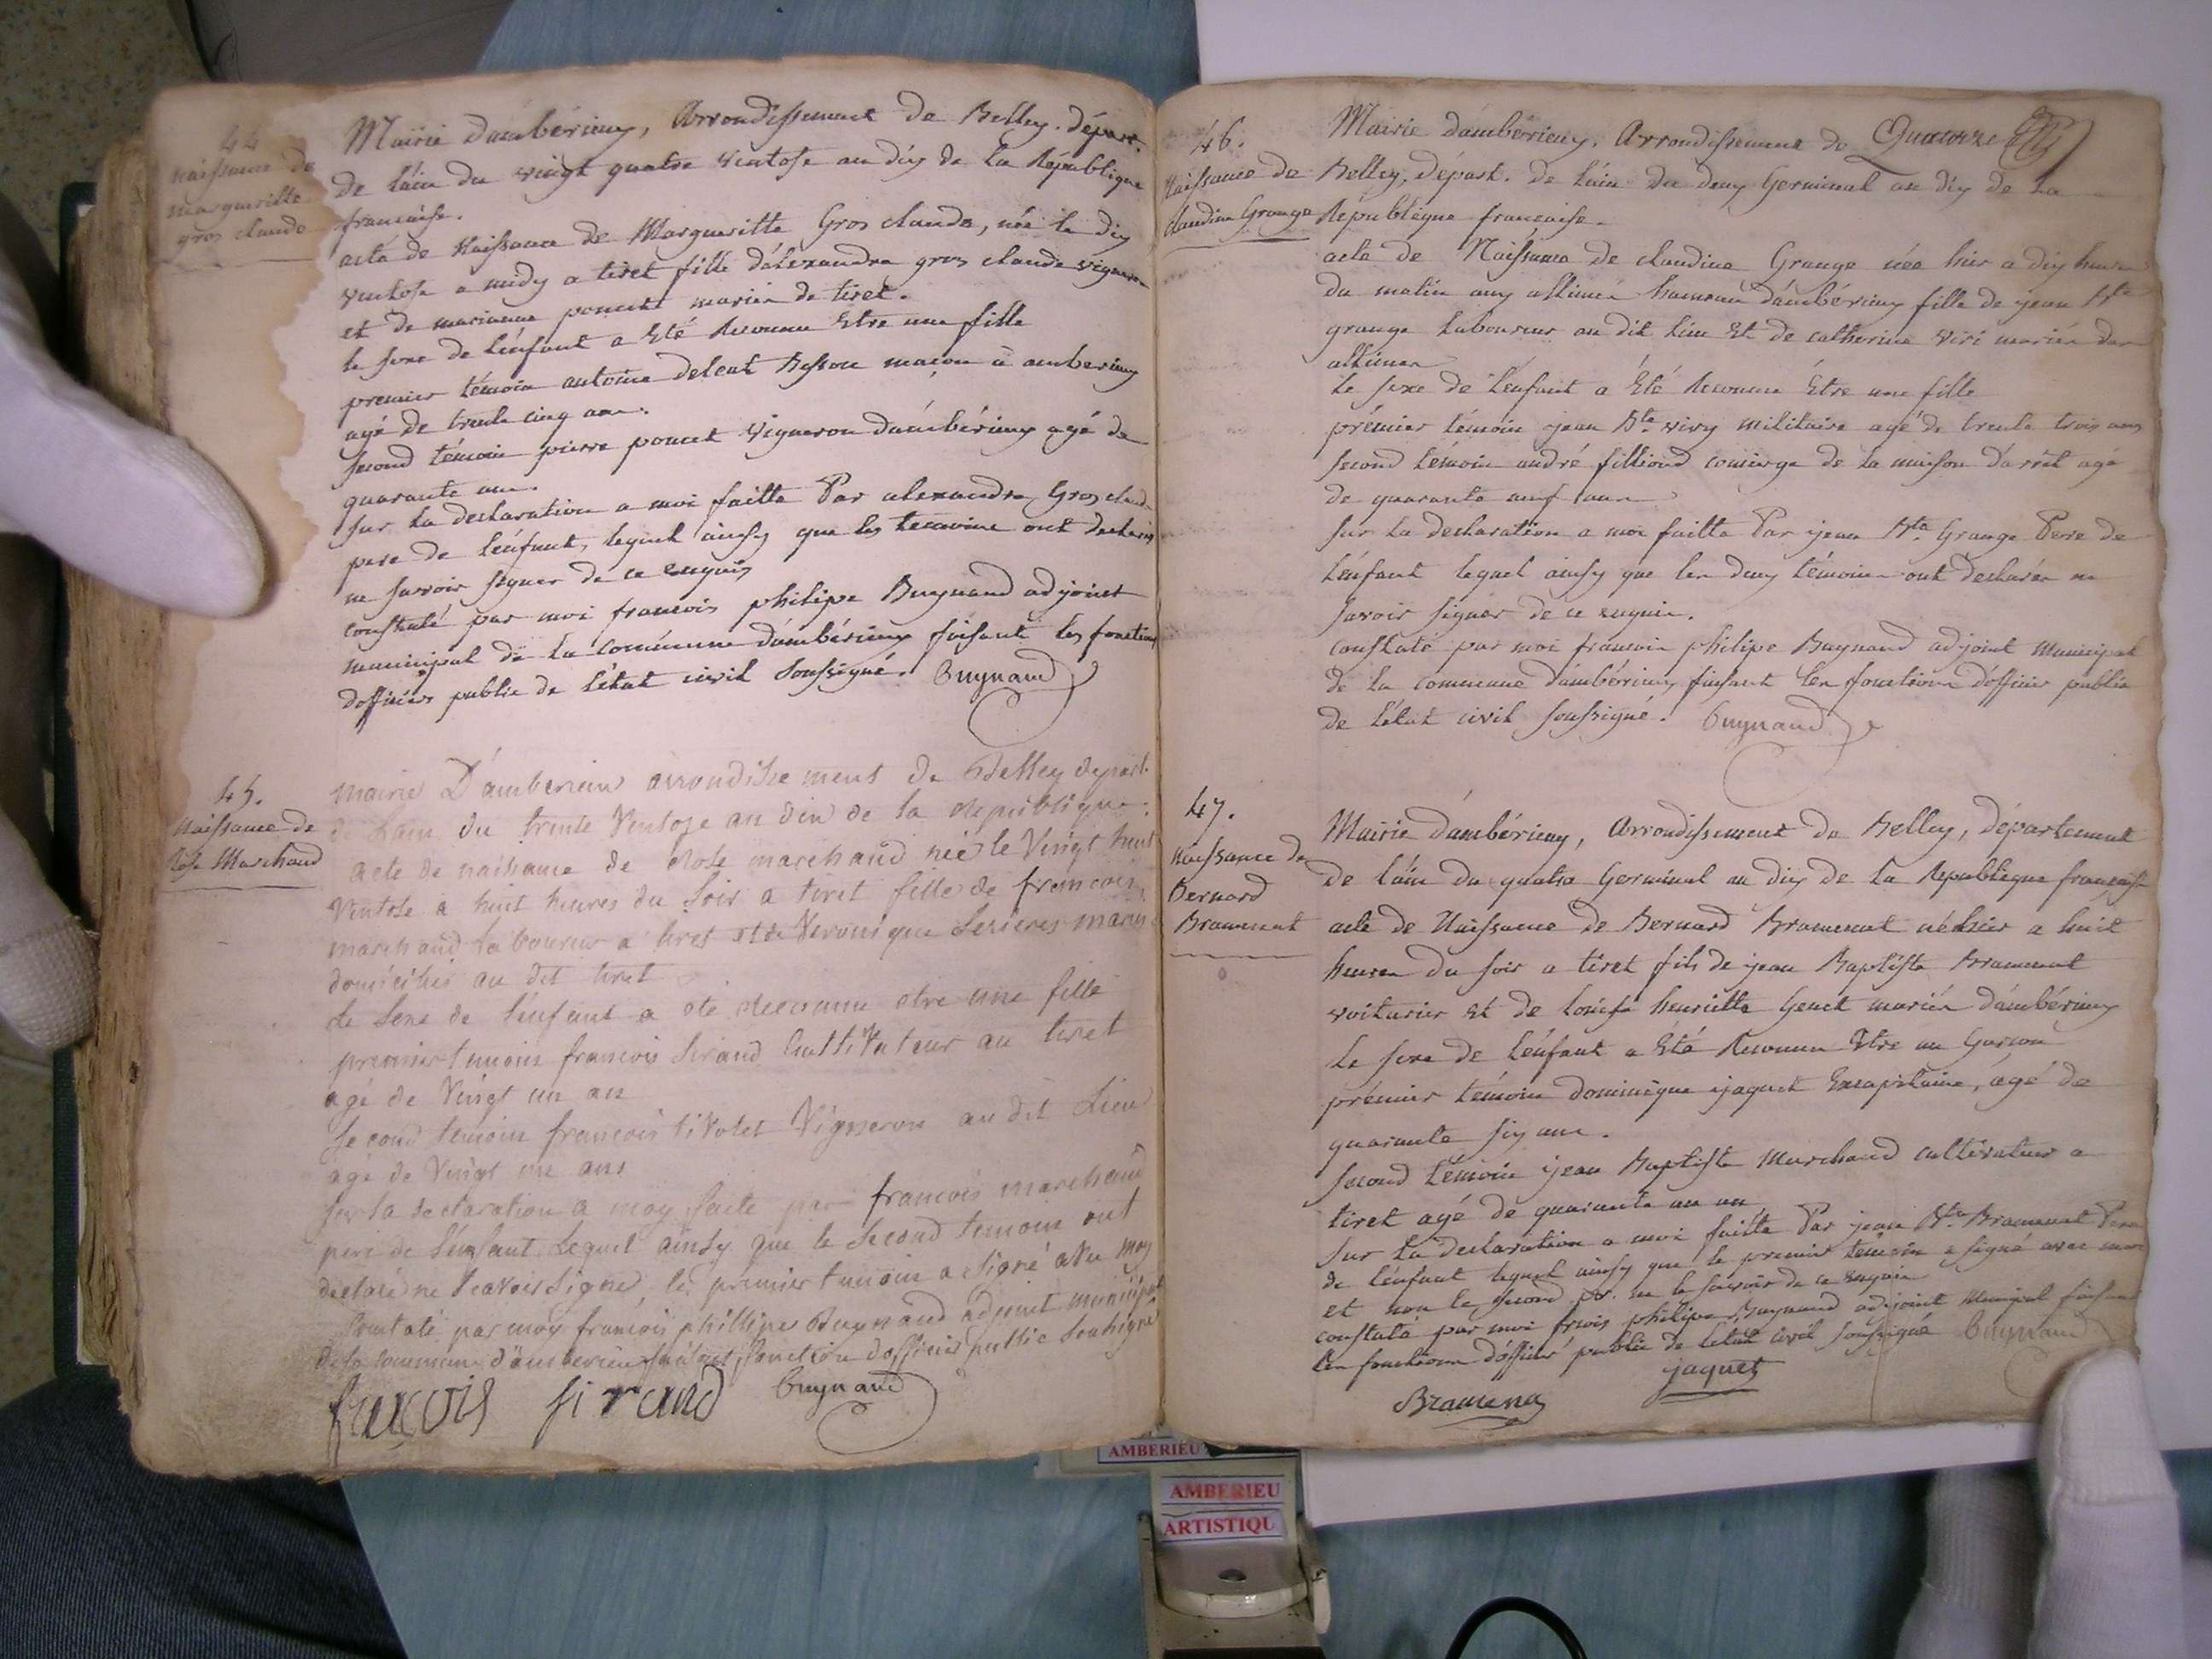 44
naissance de
margueritte
gros claude
Mairie d'ambérieux, Arrondissement de Belley. départ.
de l'ain du vingt quatre ventose an dix de la République
francaise.
acte de Naissance de Margueritte Gros claude, née le dix
ventose a midy a tiret fille d'alexandre gros claude vigneron
et de marianne poncet mariés de tiret.
le sexe de l'enfant a Eté Reconnu Etre une fille
premier témoin antoine maçon à amberieux
agé de trente cinq ans.
second témoin pierre poncet vigneron d'ambérieux agé de
quarante ans.
sur la declaration a moi faitte Par alexandre Gros claude
pere de l'enfant, lequel ainsy que les temoins ont declarés
ne savoir signer de ce enquis
constaté par moi francois philipe Buynand adjoint
municipal de la commune d'ambérieux faisant les fonctions
d'officiers public de l'état civil soussigné. Buynand
45.
Naissance de
Rose Marchand
mairie D'amberieux arrondissement de Belley depart.
de Lain du trente Ventose an dix de la republique.
acte de naissance de Rose marchand née le Vingt huit
Ventose a huit heures du soir a tiret fille de francois
marchand laboureur a tiret et de Veronique mariés
domiciliés au dit tiret
Le sexe de l'enfant a eté reconnu etre une fille
premier temoin francois Sirand Cultivateur au tiret
agé de Vingt un an
second temoin francois tivolet Vigneron au dit Lieu
agé de Vingt un ans
sur la declaration a moy faite par francois marchand
pere de l'enfant Lequel ainsy que le second temoin ont
declaré ne scavoir signé, le premier temoin a signé avec moy
Constaté par moy francois phillipe Buynand adjoint municipal
de la commune d'amberieu faisant fonction d'officier public soussigné
francois sirand Buynand
46.
Naissance de
claudine Grange
Mairie d'ambérieux, Arrondissement de Quatorze
Belley, départ. de l'ain du deux Germinal an dix de la
République francaise.
acte de Naissance de claudine Grange née hier a dix heures
du matin aux allimés hameau d'ambérieux fille de jean Bte
grange laboureur au dit lieu Et de catherine viri mariés des
allimes
Le sexe de l'enfant a Eté Reconnu Etre une fille
prémier témoin jean Bte viry militaire agé de trente trois ans
second témoin andré filliond concierge de la maison d'arrêt agé
de quarante neuf ans
sur la declaration a moi faitte Par jean Bte Grange Pere de
l'enfant lequel ainsy que les deux témoins ont declarés ne
savoir signer de ce enquis.
constaté par moi francois philipe Buynand adjoint municipal
de la commune d'ambérieux faisant les fonctions d'officier public
de l'état civil soussigné. Buynand
47.
Naissance de
Bernard
Bramerat
Mairie d'ambérieux, Arrondissement de Belley, département
de l'ain du quatre Germinal an dix de la Republique française
acte de Naissance de Bernard Bramerat né hier a huit
heures du soir a tiret fils de jean Baptiste Bramerat
voiturier et de Louise henriette Genet mariés d'ambérieux
Le sexe de l'enfant a Eté Reconnu Etre un Garcon
prémier témoin dominique jaquet Excapitaine, agé de
quarante six ans.
second témoin jean Baptiste Marchand cultivateur a
tiret agé de quarante un an
sur la declaration a moi faitte Par jean Bte Bramerat Pere
de l'enfant lequel ainsy que le premier témoin a signé avec moi
et non le second pr. ne le savoir de ce enquis
constaté par moi frcois philipe Buynand adjoint Municipal faisant
les fonctions d'officier public de l'état civil soussigné Buynand
jaquet
AMBERIEU
AMBERIEU
ARTISTIQU